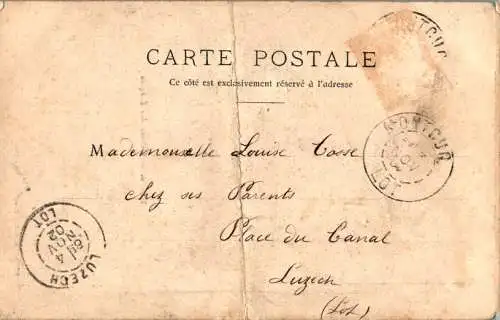 CARTE POSTALE
Ce côté est exclusivement réservé à l'adresse
MONTCUQ
LOT
Mademoiselle Louise Cosse
chez ses Parents
Place du Canal
Luzech
(Lot)
LUZECH
4
NOV
02
LOT